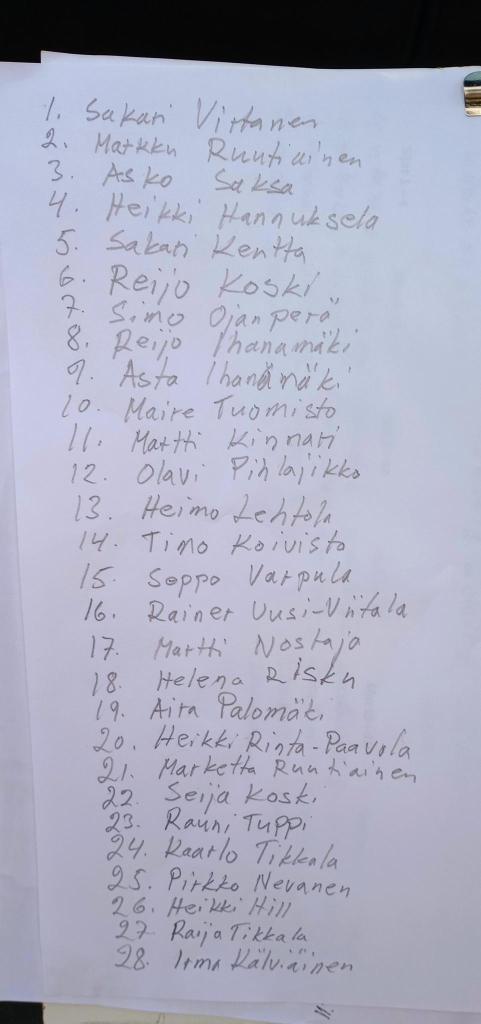 1. Sakari Virtanen
2. Markku Ruutiainen
3. Asko Saksa
4. Heikki Hannuksela
5. Sakari Kentta
6. Reijo Koski
7. Simo Ojanperä
8. Reijo Ihanamäki
9. Asta Ihanamäki
10. Maire Tuomisto
11. Martti Kinnari
12. Olavi Pihlajikko
13. Heimo Lehtola
14. Timo Koivisto
15. Seppo Varpula
16. Rainer Uusi-Viitala
17. Martti Nostaja
18. Helena Risku
19. Aira Palomäki
20. Heikki Rinta-Paavola
21. Marketta Ruutiainen
22. Seija Koski
23. Rauni Tuppi
24. Kaarlo Tikkala
25. Pirkko Nevanen
26. Heikki Hill
27. Raija Tikkala
28. Irma Kälviäinen